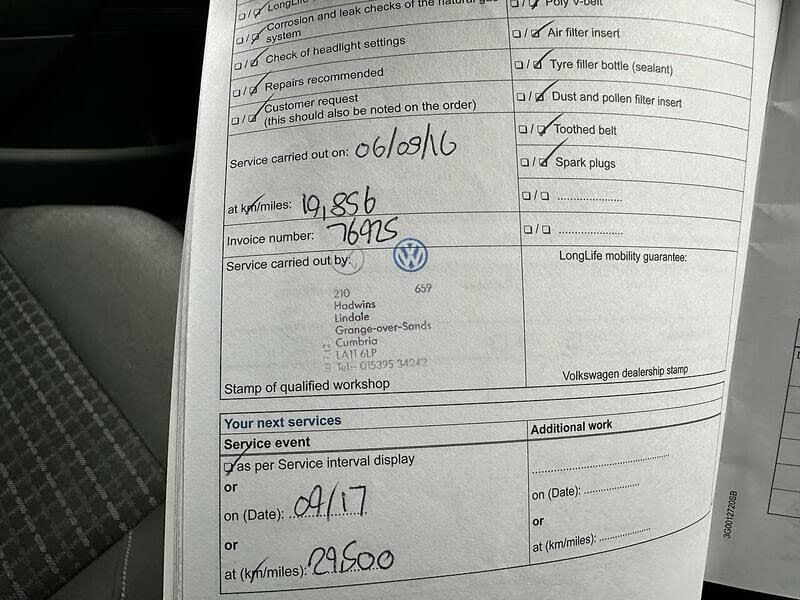 LongLife
Corrosion and leak checks of the natural gas
system
Check of headlight settings
Repairs recommended
Customer request
(this should also be noted on the order)
Service carried out on: 06/09/16
at km/miles: 19,856
Invoice number: 76925
Service carried out by:
210 659
Hadwins
Lindale
Grange-over-Sands
Cumbria
LA11 6LP
Tel:- 015395 34242
Stamp of qualified workshop
Poly V-belt
Air filter insert
Tyre filler bottle (sealant)
Dust and pollen filter insert
Toothed belt
Spark plugs
LongLife mobility guarantee:
Volkswagen dealership stamp
Your next services
Service event
as per Service interval display
or
on (Date): 09/17
or
at (km/miles): 29500
Additional work
on (Date):
or
at (km/miles):
3G0012720SB